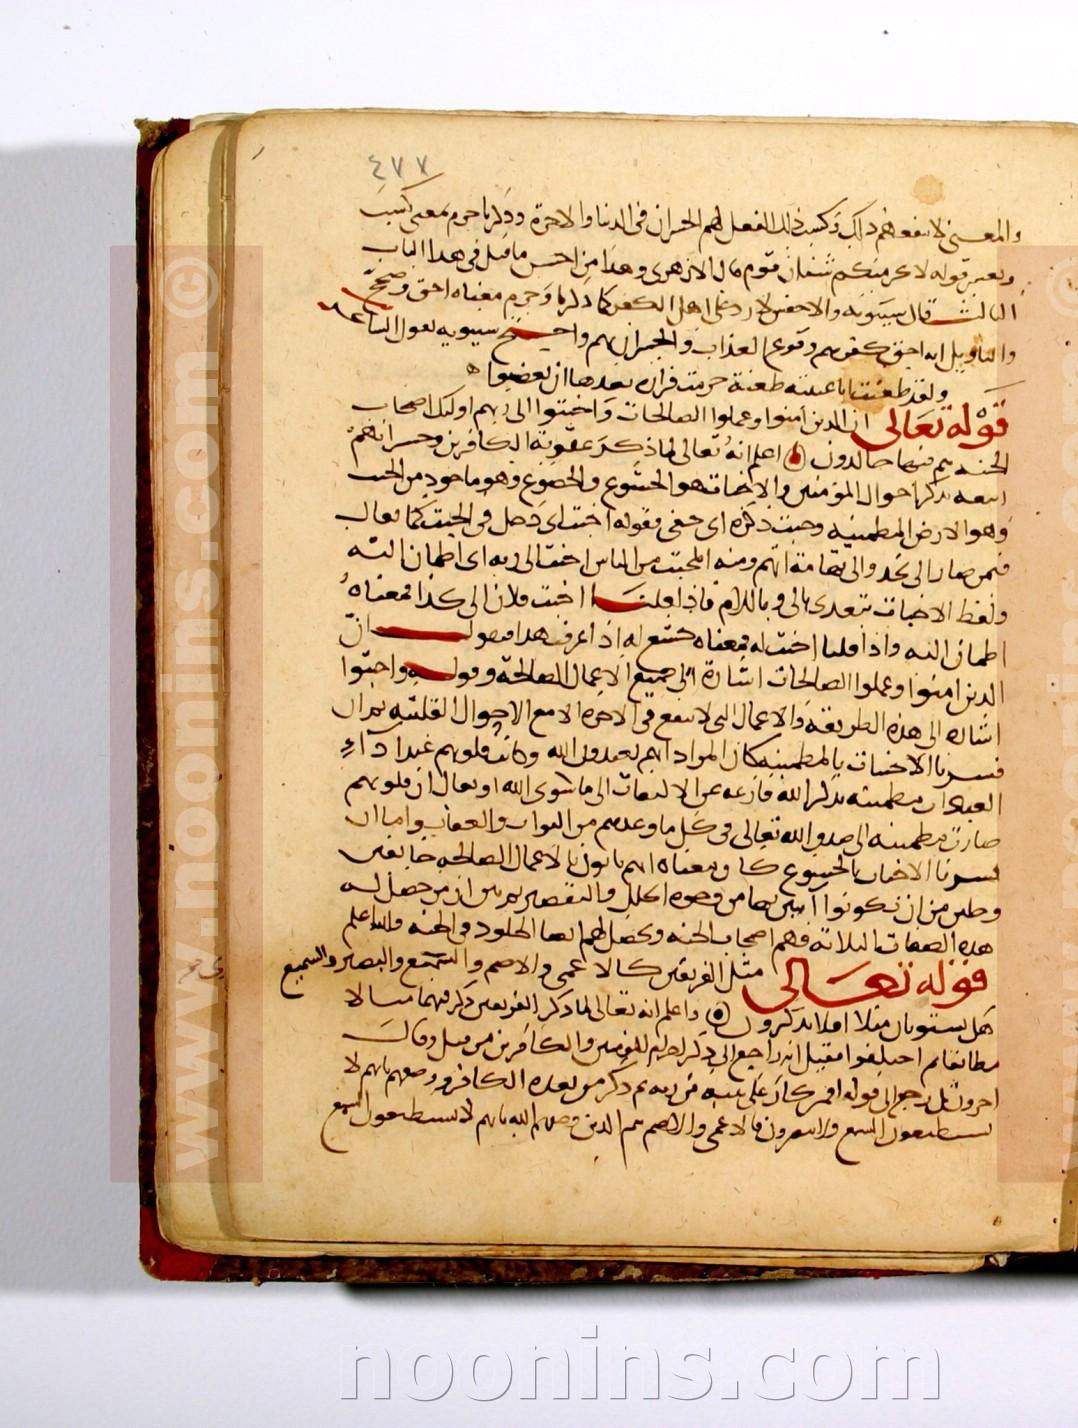 ٤٧٧
والمعنى لا ينفعهم ذلك وكسب ذلك الفعل لهم الخسران في الدنيا والاخرة وذكرنا جرم بمعنى كسب
وتفسير قوله لا يجرمنكم شنان قوم قال الازهري وهذا من احسن ما قيل في هذا الباب
الثالث قال سيبويه والاخفش لا رد على اهل الكفر كما ذكرنا وجرم معناه احق وصحح
والتاويل انه احق كفرهم وقوع العذاب والخسران بهم واحتج سيبويه بقول الشاعر
ولقد طعنت ابا عيينة طعنة جرمت فزارة بعدها ان يغضبوا ه
قوله تعالى ان الذين امنوا وعملوا الصالحات واخبتوا الى ربهم اولئك اصحاب
الجنة هم فيها خالدون اعلم انه تعالى لما ذكر عقوبة الكافرين وخسرانهم
اتبعه بذكر احوال المؤمنين والاخبات هو الخشوع والخضوع وهو ماخوذ من الخبت
وهو الارض المطمئنة وخبت ذكره اي خفي فقوله اخبت اي دخل في الخبت كما يقال
فمن صار الى نجد والى تهامة اتهم ومنه المخبت من الناس اخبت الى ربه اي اطمان اليه
ولفظ الاخبات يتعدى بالى وباللام فاذا قلنا اخبت فلان الى كذا فمعناه
اطمان اليه واذا قلنا اخبت له فمعناه خشع له اذا عرفت هذا فقوله ان
الذين امنوا وعملوا الصالحات اشارة الى جميع الاعمال الصالحة وقوله واخبتوا
اشارة الى هذه الطريقة والاعمال التي لا تنفع في الاخرة الا مع الاحوال القلبية ثم ان
فسرنا الاخبات بالطمئنينة كان المراد انهم يعبدون الله وكانت قلوبهم عند اداء
العبادات مطمئنة بذكر الله فارغة عن الالتفات الى ما سوى الله او يقال ان قلوبهم
صارت مطمئنة الى صدق الله تعالى في كل ما وعدهم من الثواب والعقاب واما ان
فسرنا الاخبات بالخشوع كان معناه انهم ياتون بالاعمال الصالحة خايفين
وجلين من ان تكونوا آتين بها من وجوه الخلل والتقصير ثم بين ان من حصل له
هذه الصفات الثلاثة فهم اصحاب الجنة ويحصل لهم الخلود في الجنة والله اعلم
قوله تعالى مثل الفريقين كالاعمى والاصم والبصير والسميع
هل يستويان مثلا افلا تذكرون واعلم انه تعالى لما ذكر الفريقين ذكر فيهما مثالا
مطابقا ثم اختلفوا فقيل انه راجع الى ذكر اخرا من المؤمنين والكافرين من قبل وقال
اخرون بل رجع الى قوله افمن كان على بينة من ربه ثم ذكر من بعده الكافرين ووصفهم بانهم لا
يستطيعون السمع ولا يبصرون فالاعمى والاصم هم الذين وصفهم الله بانهم لا يستطيعون السمع
www.noonins.com ©
noonins.com